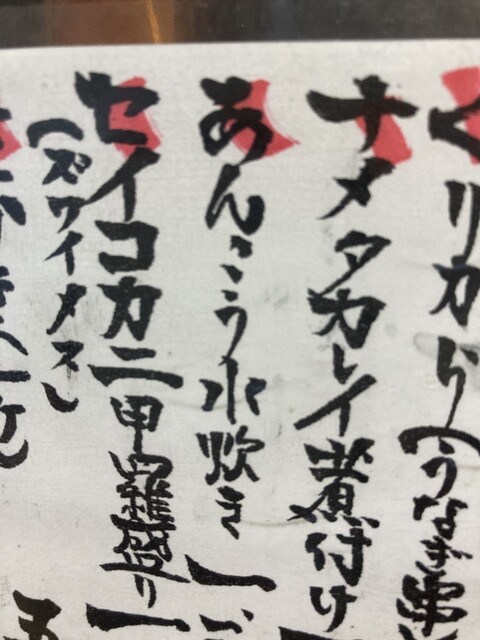 くりから(うなぎ串
ナメタカレイ煮付け
あんこう水炊き 一
セイコカニ甲羅盛り 一
(ズワイメス)